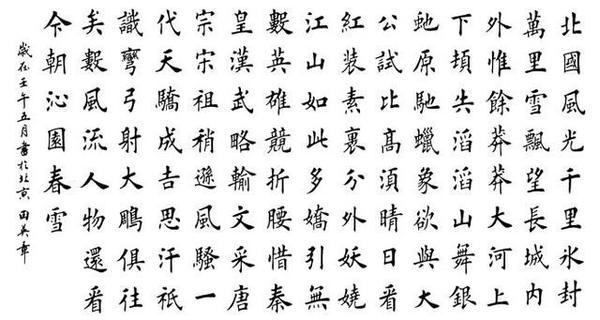 北國風光千里氷封
萬里雪飄望長城内
外惟餘莽莽大河上
下頓失滔滔山舞銀
虵原馳蠟象欲與大
公試比髙湏晴日看
紅装素裹分外妖嬈
江山如此多嬌引無
數英雄競折腰惜秦
皇漢武略輸文采唐
宗宋祖稍遜風騷一
代天驕成吉思汗祇
識彎弓射大鵰俱往
矣數風流人物還看
今朝沁園春雪
歲在壬午五月書於北京田英章